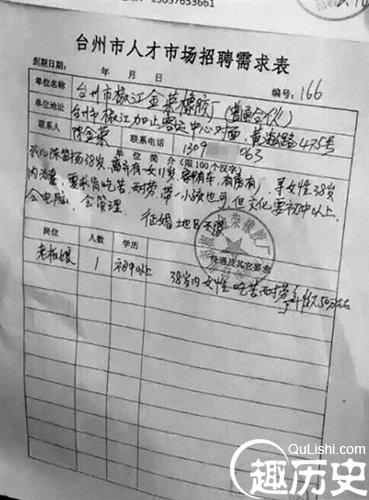 15057653661
台州市人才市场招聘需求表
到期日期: 年 月 日 编号: 166
单位名称 台州市椒江金荣橡胶厂(普通合伙)
单位地址 台州市椒江加止 中心对面,黄海路475号
联系人 陈金荣 联系电话 1309 063
单位简介(限100个汉字)
我儿陈 38岁,离异有一女11岁,家中有车,有住房),寻女性38岁
内为妻,要求肯吃苦耐劳,带一小孩也可,但文化要初中以上,
会电脑,会管理. 征婚地区不限
岗位 人数 学历 待遇及其它要求
老板娘 1 初中以上 38岁内女性,吃苦耐劳,年 50万左右
QuLishi.com
趣历史